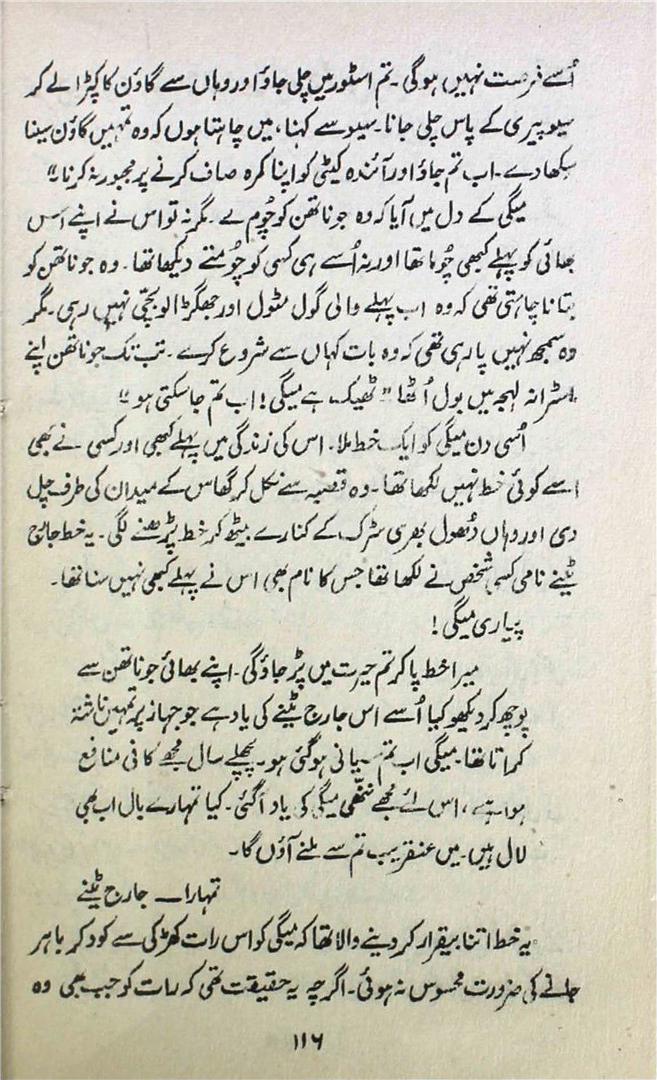 اُسے فرصت نہیں ہوگی۔ تم اسٹور میں چلی جاؤ اور وہاں سے گاؤن کا کپڑا لے کر
سیو پیری کے پاس چلی جانا۔ سیو سے کہنا، میں چاہتا ہوں کہ وہ تمہیں گاؤن سینا
سکھا دے۔ اب تم جاؤ اور آئندہ کیٹی کو اپنا کمرہ صاف کرنے پر مجبور نہ کرنا۔"
میگی کے دل میں آیا کہ وہ جوناتھن کو چُوم لے۔ مگر نہ تو اس نے اپنے اس
بھائی کو پہلے کبھی چُوما تھا اور نہ اُسے ہی کسی کو چُومتے دیکھا تھا۔ وہ جوناتھن کو
بتانا چاہتی تھی کہ وہ اب پہلے والی گول مٹول اور جھگڑالو بچّی نہیں رہی۔ مگر
وہ سمجھ نہیں پا رہی تھی کہ وہ بات کہاں سے شروع کرے۔ تب تک جوناتھن اپنے
افسرانہ لہجہ میں بول اُٹھا "ٹھیک ہے میگی! اب تم جا سکتی ہو۔"
اُسی دن میگی کو ایک خط ملا۔ اس کی زندگی میں پہلے کبھی اور کسی نے بھی
اسے کوئی خط نہیں لکھا تھا۔ وہ قصبہ سے نکل کر گھاس کے میدان کی طرف چل
دی اور وہاں دُھول بھری سڑک کے کنارے بیٹھ کر خط پڑھنے لگی۔ یہ خط جارج
ٹینے نامی کسی شخص نے لکھا تھا جس کا نام بھی اس نے پہلے کبھی نہیں سنا تھا۔
پیاری میگی!
میرا خط پا کر تم حیرت میں پڑ جاؤ گی۔ اپنے بھائی جوناتھن سے
پوچھ کر دیکھو کیا اُسے اس جارج ٹینے کی یاد ہے جو جہاز پر تمہیں ناشتہ
کراتا تھا۔ میگی اب تم سیانی ہو گئی ہو۔ پچھلے سال مجھے کافی منافع
ہوا ہے، اس لئے مجھے ننھّی میگی کی یاد آ گئی۔ کیا تمہارے بال اب بھی
لال ہیں۔ میں عنقریب تم سے ملنے آؤں گا۔
تمہارا — جارج ٹینے
یہ خط اتنا بیقرار کر دینے والا تھا کہ میگی کو اس رات کھڑکی سے کود کر باہر
جانے کی ضرورت محسوس نہ ہوئی۔ اگرچہ یہ حقیقت تھی کہ رات کو جب بھی وہ
۱۱۶